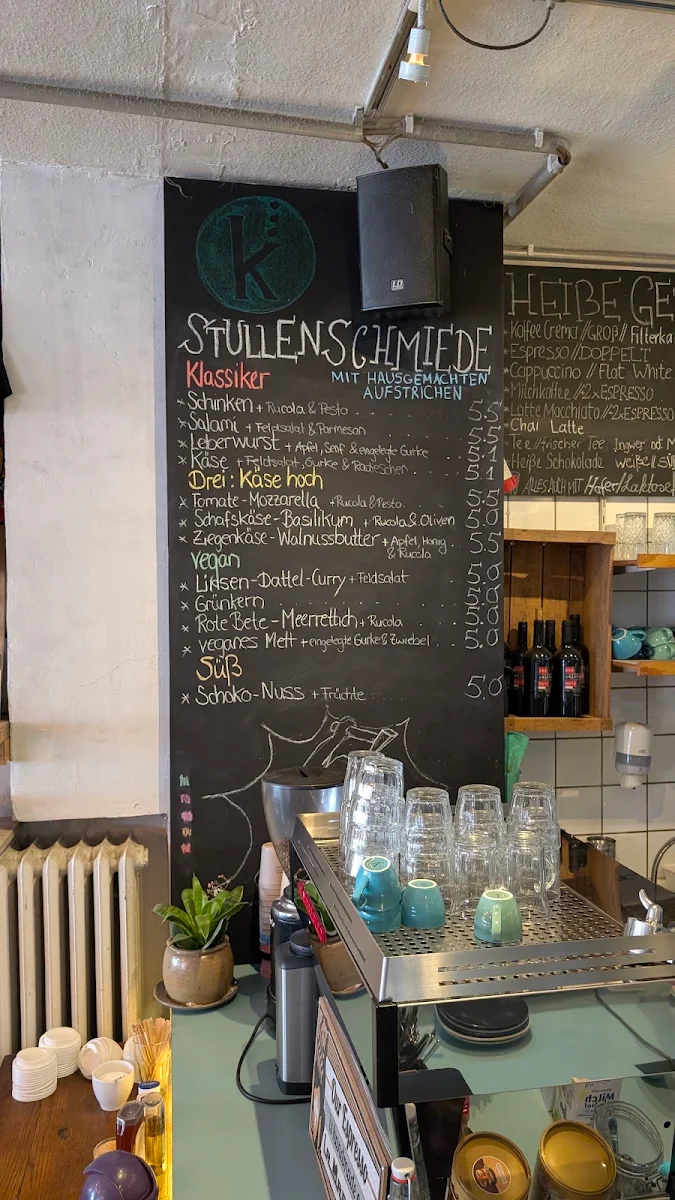 K
LD
STULLENSCHMIEDE
Klassiker
MIT HAUSGEMACHTEN
AUFSTRICHEN
* Schinken + Rucola & Pesto 5.5
* Salami + Feldsalat & Parmesan 5.5
* Leberwurst + Apfel, Senf & eingelegte Gurke 5.1
* Käse + Feldsalat, Gurke & Radieschen 5.1
Drei: Käse hoch
* Tomate-Mozzarella + Rucola & Pesto 5.5
* Schafskäse-Basilikum + Rucola & Oliven 5.0
* Ziegenkäse-Walnussbutter + Apfel, Honig 5.5
& Rucola
vegan
* Linsen-Dattel-Curry + Feldsalat 5.0
* Grünkern 5.0
* Rote Bete-Meerrettich + Rucola 5.0
* veganes Mett + eingelegte Gurke & Zwiebel 5.0
Süß
* Schoko-Nuss + Früchte 5.0
HEIßE GE
Kaffee Crema // GROß // Filterka
Espresso // DOPPELT
Cappuccino // Flat White
Milchkaffee // 2x ESPRESSO
Latte Macchiato // 2x ESPRESSO
Chai Latte
Tee // frischer Tee Ingwer od. M
Heiße Schokolade weiße
ALLES AUCH MIT Hafer
Our Espresso
Milch